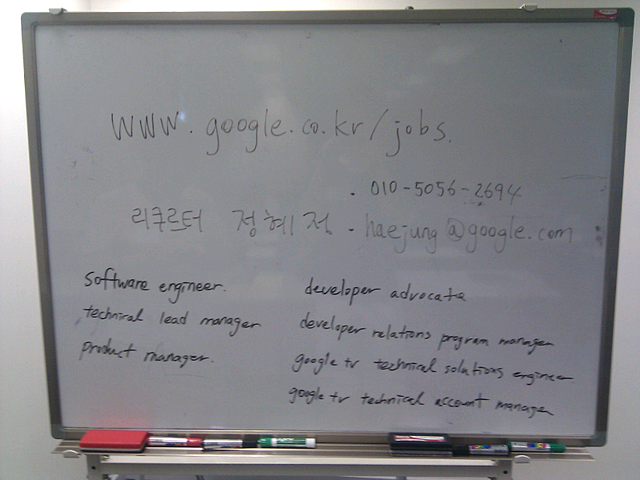 www.google.co.kr/jobs.
. 010-5056-2694
리쿠르터 정혜정 . haejung@google.com
software engineer.
technical lead manager
product manager.
developer advocate
developer relations program manager
google tv technical solutions engineer
google tv technical account manager